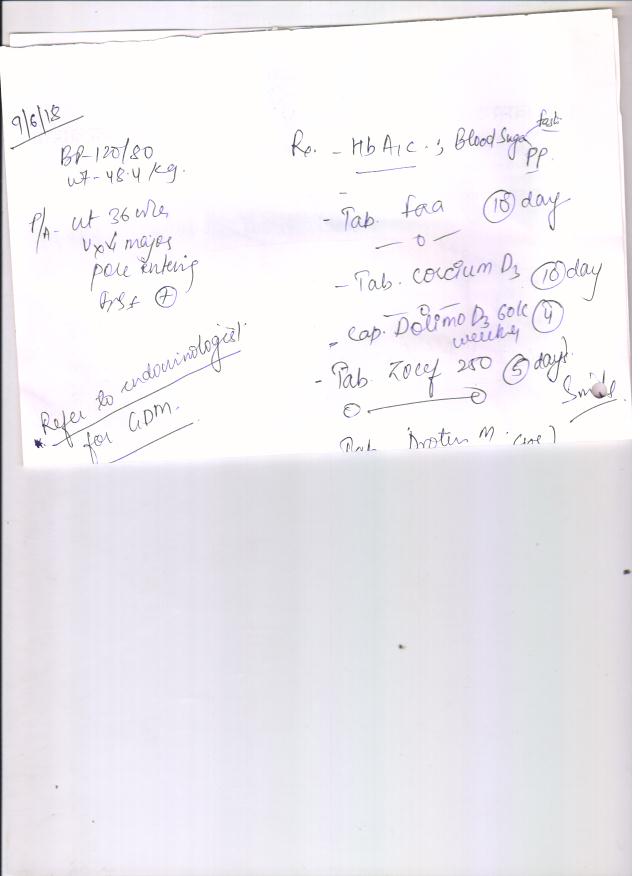 9/6/18
BP-120/80
wt-48.4 kg.
P/A- ut 36 wks
Vx
pole entering
FHS + (+)
Refer to endocrinologist
for GDM.
Rx. - HbA1c. ; Blood Sugar fast
PP
- Tab. 10 day
- 0 -
- Tab. calcium D3 10 day
- Cap. D3 60K 4
weekly
- Tab. Zocef 250 5 days
Tab. M.